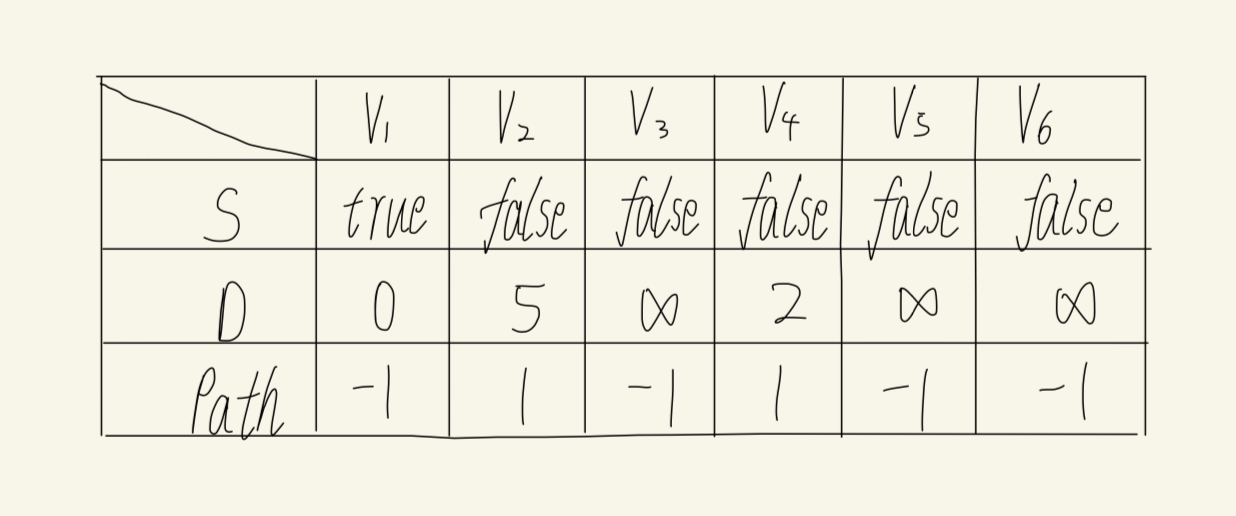 V₁ V₂ V₃ V₄ V₅ V₆
S true false false false false false
D 0 5 ∞ 2 ∞ ∞
Path -1 1 -1 1 -1 -1